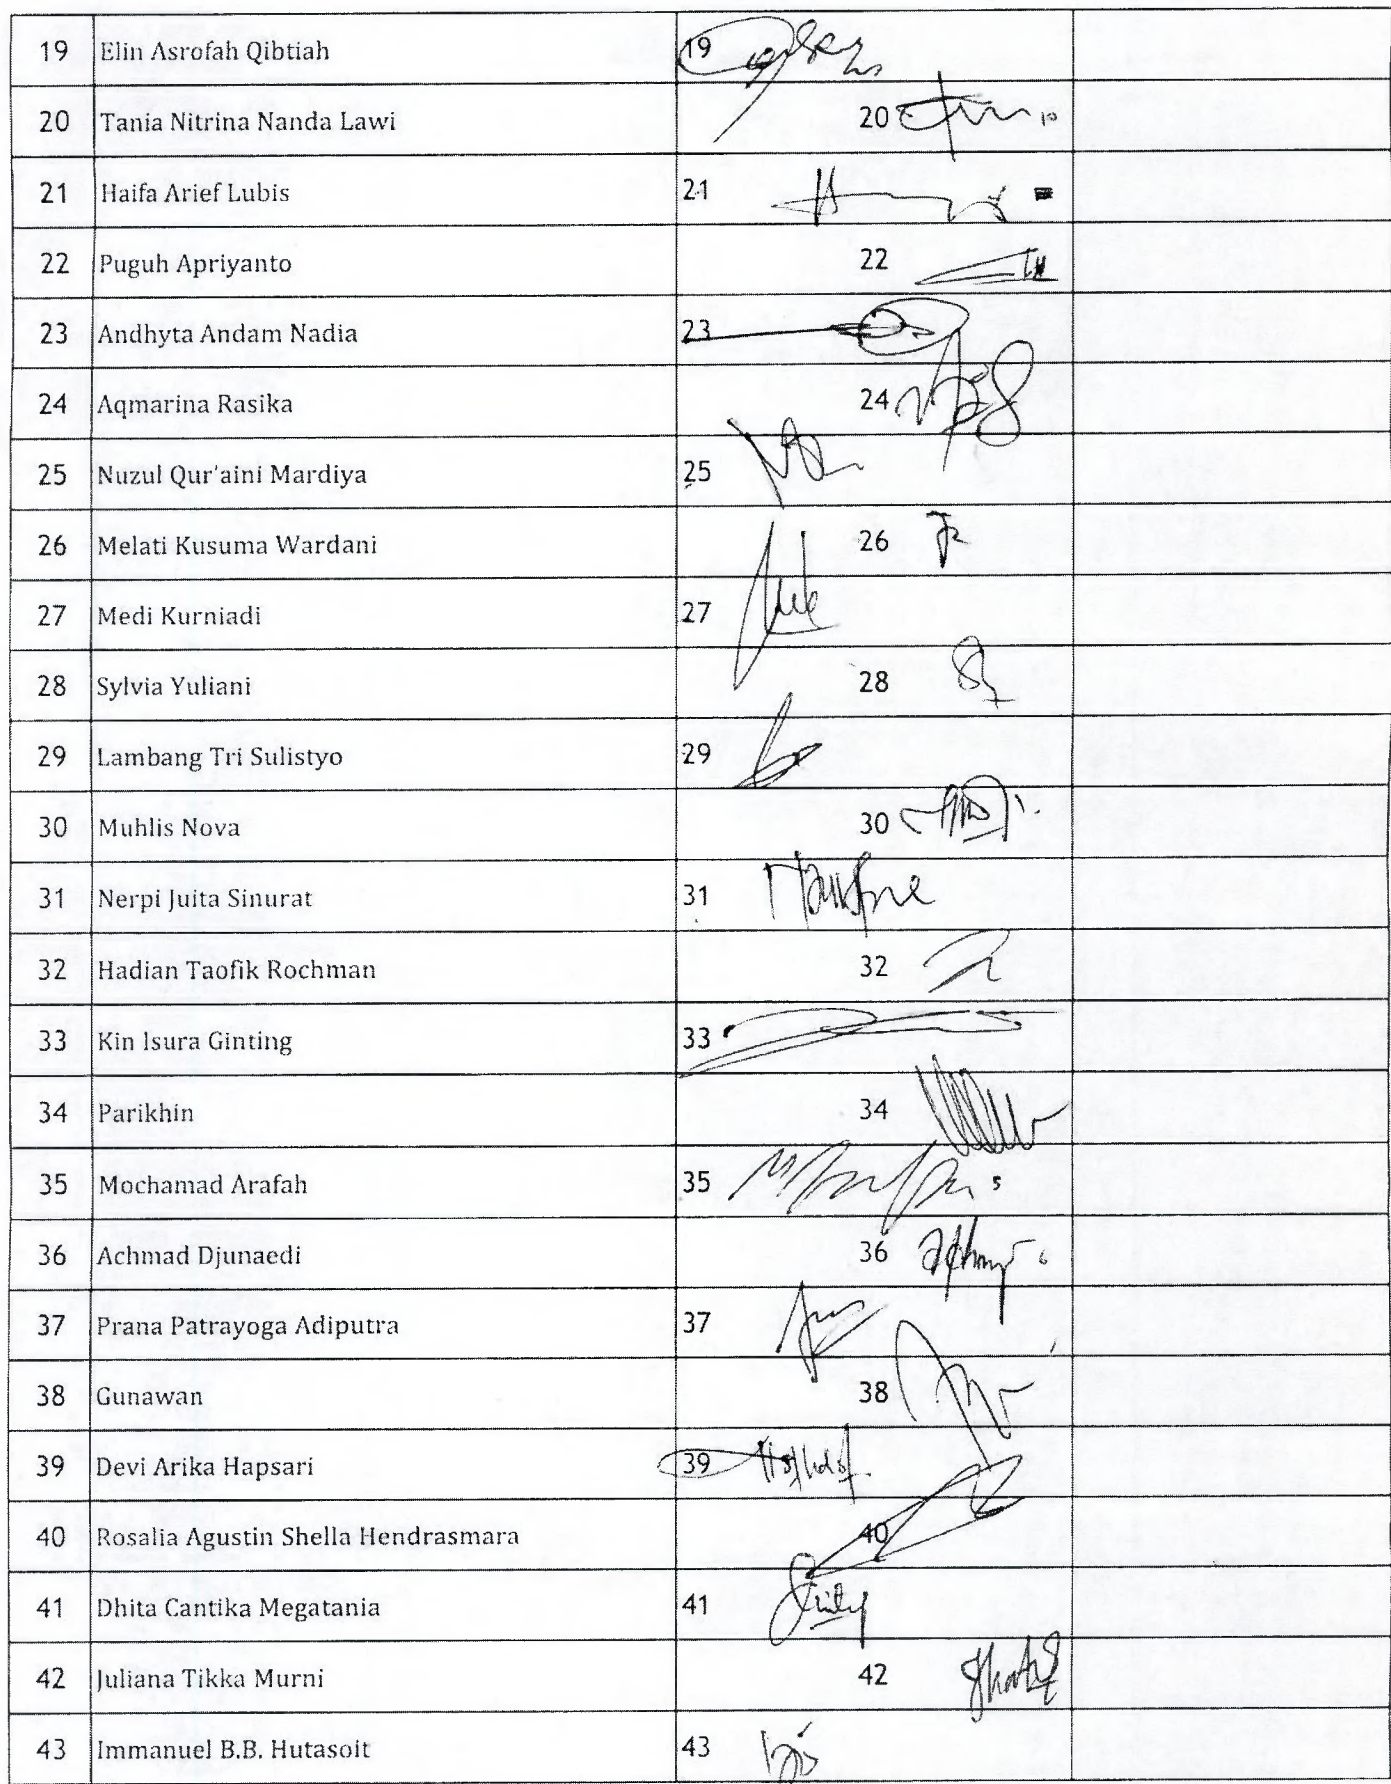 19 Elin Asrofah Qibtiah 19
20 Tania Nitrina Nanda Lawi 20
21 Haifa Arief Lubis 21
22 Puguh Apriyanto 22
23 Andhyta Andam Nadia 23
24 Aqmarina Rasika 24
25 Nuzul Qur'aini Mardiya 25
26 Melati Kusuma Wardani 26
27 Medi Kurniadi 27
28 Sylvia Yuliani 28
29 Lambang Tri Sulistyo 29
30 Muhlis Nova 30
31 Nerpi Juita Sinurat 31
32 Hadian Taofik Rochman 32
33 Kin Isura Ginting 33
34 Parikhin 34
35 Mochamad Arafah 35
36 Achmad Djunaedi 36
37 Prana Patrayoga Adiputra 37
38 Gunawan 38
39 Devi Arika Hapsari 39
40 Rosalia Agustin Shella Hendrasmara 40
41 Dhita Cantika Megatania 41
42 Juliana Tikka Murni 42
43 Immanuel B.B. Hutasoit 43